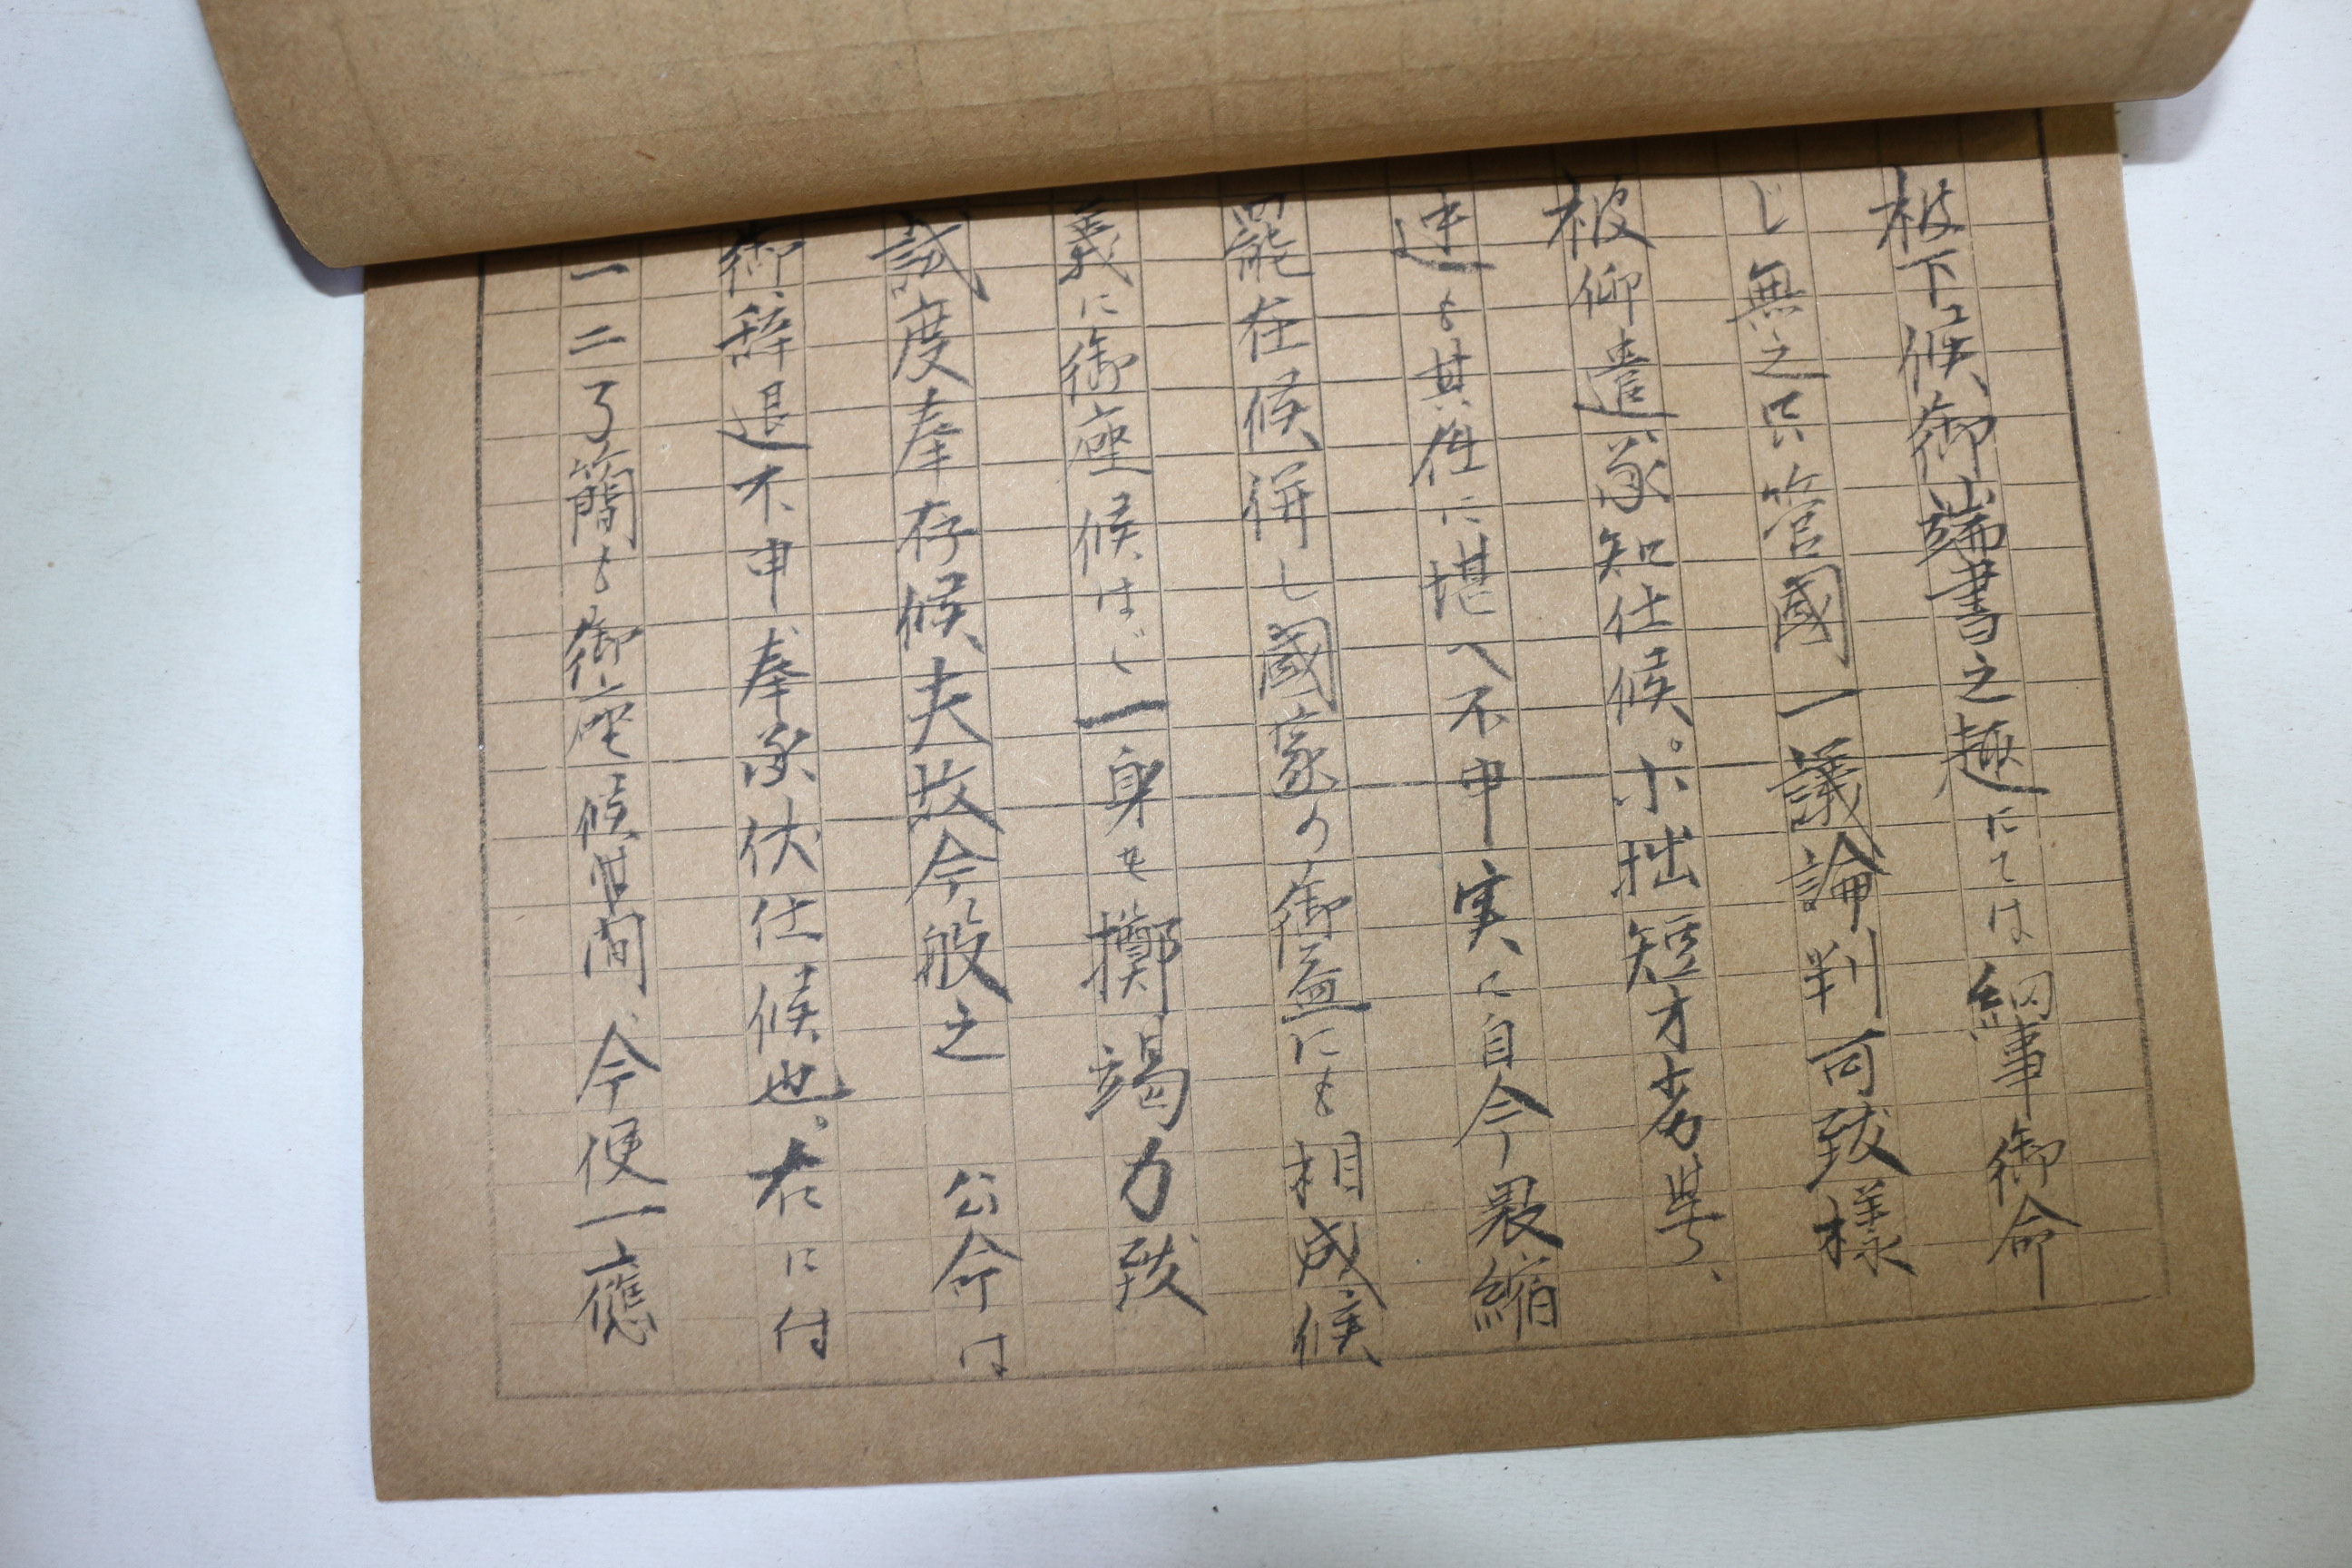 被下候御端書之趣にては細事御命
じ無之只管國一議論判可致樣
被仰遣承知仕候。小拙短才劣學、
迚も其任に堪へ不申実に自今畏縮
罷在候併し國家の御益にも相成候
義に御座候はゞ一身を擲竭力致
試度奉存候夫故今般之　公命は
御辞退不申奉承伏仕候也。右に付
一二了簡も御座候間、今便一應